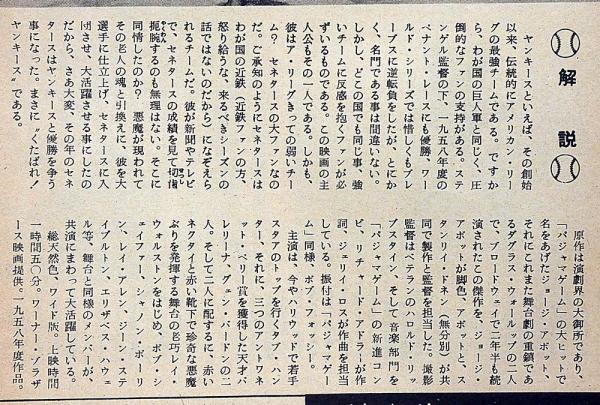 解説
ヤンキースといえば、その創始
以来、伝統的にアメリカン・リー
グの最強チームである。ですか
ら、わが国の巨人軍と同じく、圧
倒的なファンの支持がある。ステ
ンゲル監督の下、一九五八年度の
ペナント・レースにも優勝、ワー
ルド・シリーズでは惜しくもブレ
ーブスに逆転負をしたが、とにか
く、名門である事は間違いない。
しかし、どこの国でも同じ事、強
いチームに反感を抱くファンが必
ずいるものである。この映画の主
人公もその一人である。しかも、
彼はア・リーグきっての弱いチー
ム？　セネタースの大ファンなの
だ。ご承知のようにセネタースは
わが国の近鉄（近鉄ファンの方、
怒り給うな、来るべきシーズンの
話ではないのだから）になぞえら
れるチームだ。彼が新聞やテレビ
で、セネタースの成績を見て切歯
扼腕するのも無理はない。そこに
同情したのか？　悪魔が現われて
その老人の魂と引換えに、彼を大
選手に仕立上げ、セネタースに入
団させ、大活躍させる事にしたの
だから、さあ大変、その年のセネ
タースはヤンキースと優勝を争う
事になった。まさに〝くたばれ！
ヤンキース〟である。
原作は演劇界の大御所であり、
「パジャマゲーム」の大ヒットで
名をあげたジョージ・アボット、
それにこれまた舞台劇の重鎮であ
るダグラス・ウォーロップの二人
で、ブロードウェイで二年半も続
演されたこの傑作を、ジョージ・
アボットが脚色、アボットと、ス
タンリイ・ドネン（無分別）が共
同で製作と監督を担当した。撮影
監督はベテランのハロルド・リッ
プスタイン、そして音楽部門を
「パジャマゲーム」の新進コン
ビ、リチャード・アドラーが作
詞、ジェリイ・ロスが作曲を担当
している。振付は「パジャマゲー
ム」同様、ボブ・フォッシー。
主演は、今やハリウッドで若手
スタアのトップを行くタブ・ハン
ター、それに、三つのアントワネ
ット・ペリー賞を獲得した天才バ
レリーナ、グエン・バードンの二
人。そしてこの二人に配するに、赤い
ネクタイと赤い靴下で珍奇な悪魔
ぶりを発揮する舞台の老巧レイ・
ウォルストンをはじめ、ボブ・シ
ェイファー、シャノン・ボーリ
ン、レイ・アレン、ジーン・ステ
イプルトン、エリザベス・ハウェ
ル等、舞台と同様のメンバーが、
共演にまわって大活躍している。
総天然色、ワイド版、上映時間
一時間五〇分。ワーナー・ブラザ
ース映画提供。一九五八年度作品。